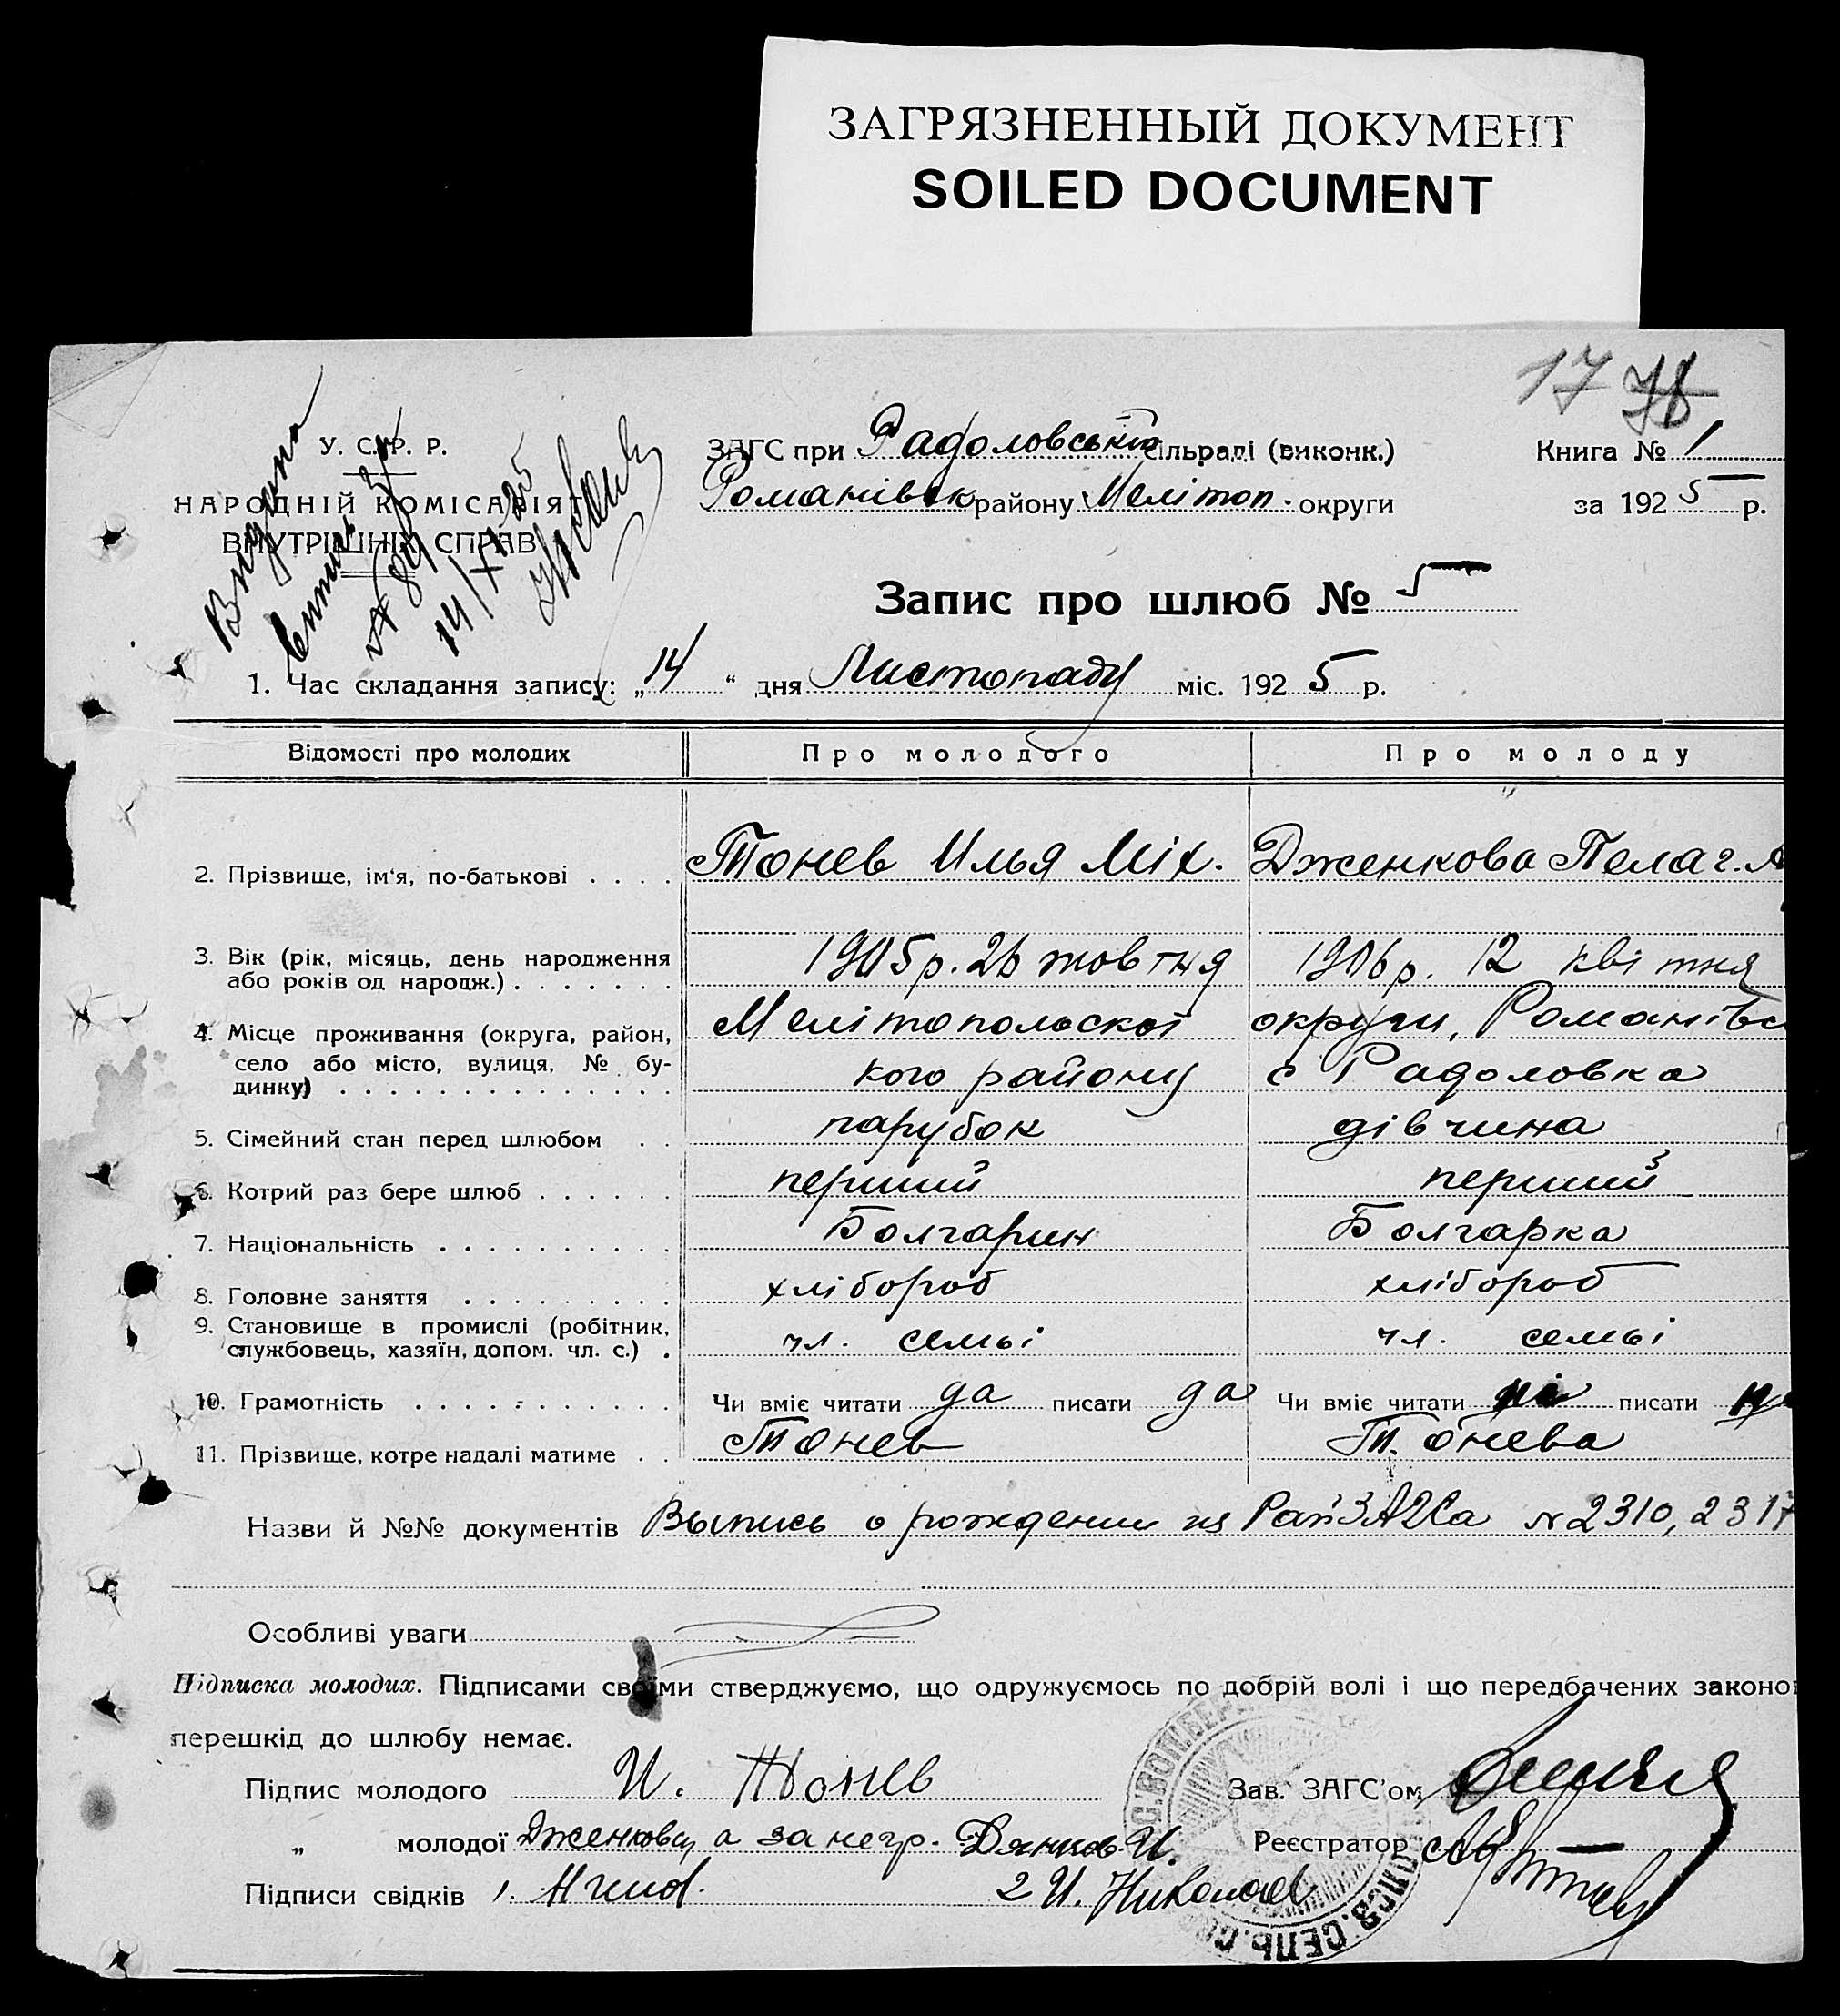 ЗАГРЯЗНЕННЫЙ ДОКУМЕНТ
SOILED DOCUMENT
17 78
У. С. Р. Р.
НАРОДНІЙ КОМІСАРІЯТ
ВНУТРІШНІХ СПРАВ
Видана
№ 89
14/XI 25
ЗАГС при Радоловській сільраді (виконк.)
Романівск району Меліт оп. округи
Книга № 1
за 1925 р.
Запис про шлюб № 5
1. Час складання запису: „14" дня Листопаду міс. 1925 р.
Відомості про молодих Про молодого Про молоду
2. Прізвище, ім'я, по-батькові . . . . Тонев Илья Міх. Дженкова Пелаг. А
3. Вік (рік, місяць, день народження
або років од народж.) . . . . . . . 1905 р. 26 жовтня 1906 р. 12 квітня
4. Місце проживання (округа, район, Мелітопольскої округи, Романівс
село або місто, вулиця, № бу-
динку) . . . . . . . . . . . . . . кого району с Радоловка
5. Сімейний стан перед шлюбом . . парубок дівчина
6. Котрий раз бере шлюб . . . . . . перший перший
7. Національність . . . . . . . . . . Болгарин Болгарка
8. Головне заняття . . . . . . . . . хлібороб хлібороб
9. Становище в промислі (робітник,
службовець, хазяїн, допом. чл. с.) . чл. семьі чл. семьі
10. Грамотність . . . . . . . . . . . Чи вміє читати да писати да Чи вміє читати ні писати
11. Прізвище, котре надалі матиме . . Тонев Т. онева
Назви й №№ документів Выпись о рождении из РайЗАГСа № 2310, 2317
Особливі уваги
Підписка молодих. Підписами своїми стверджуємо, що одружуємось по добрій волі і що передбачених законо
перешкід до шлюбу немає.
Підпис молодого И. Тонев Зав. ЗАГС'ом
„ молодої Дженкова а за негр. Дянков И. Реєстратор
Підписи свідків 1. 2 И. Николаев